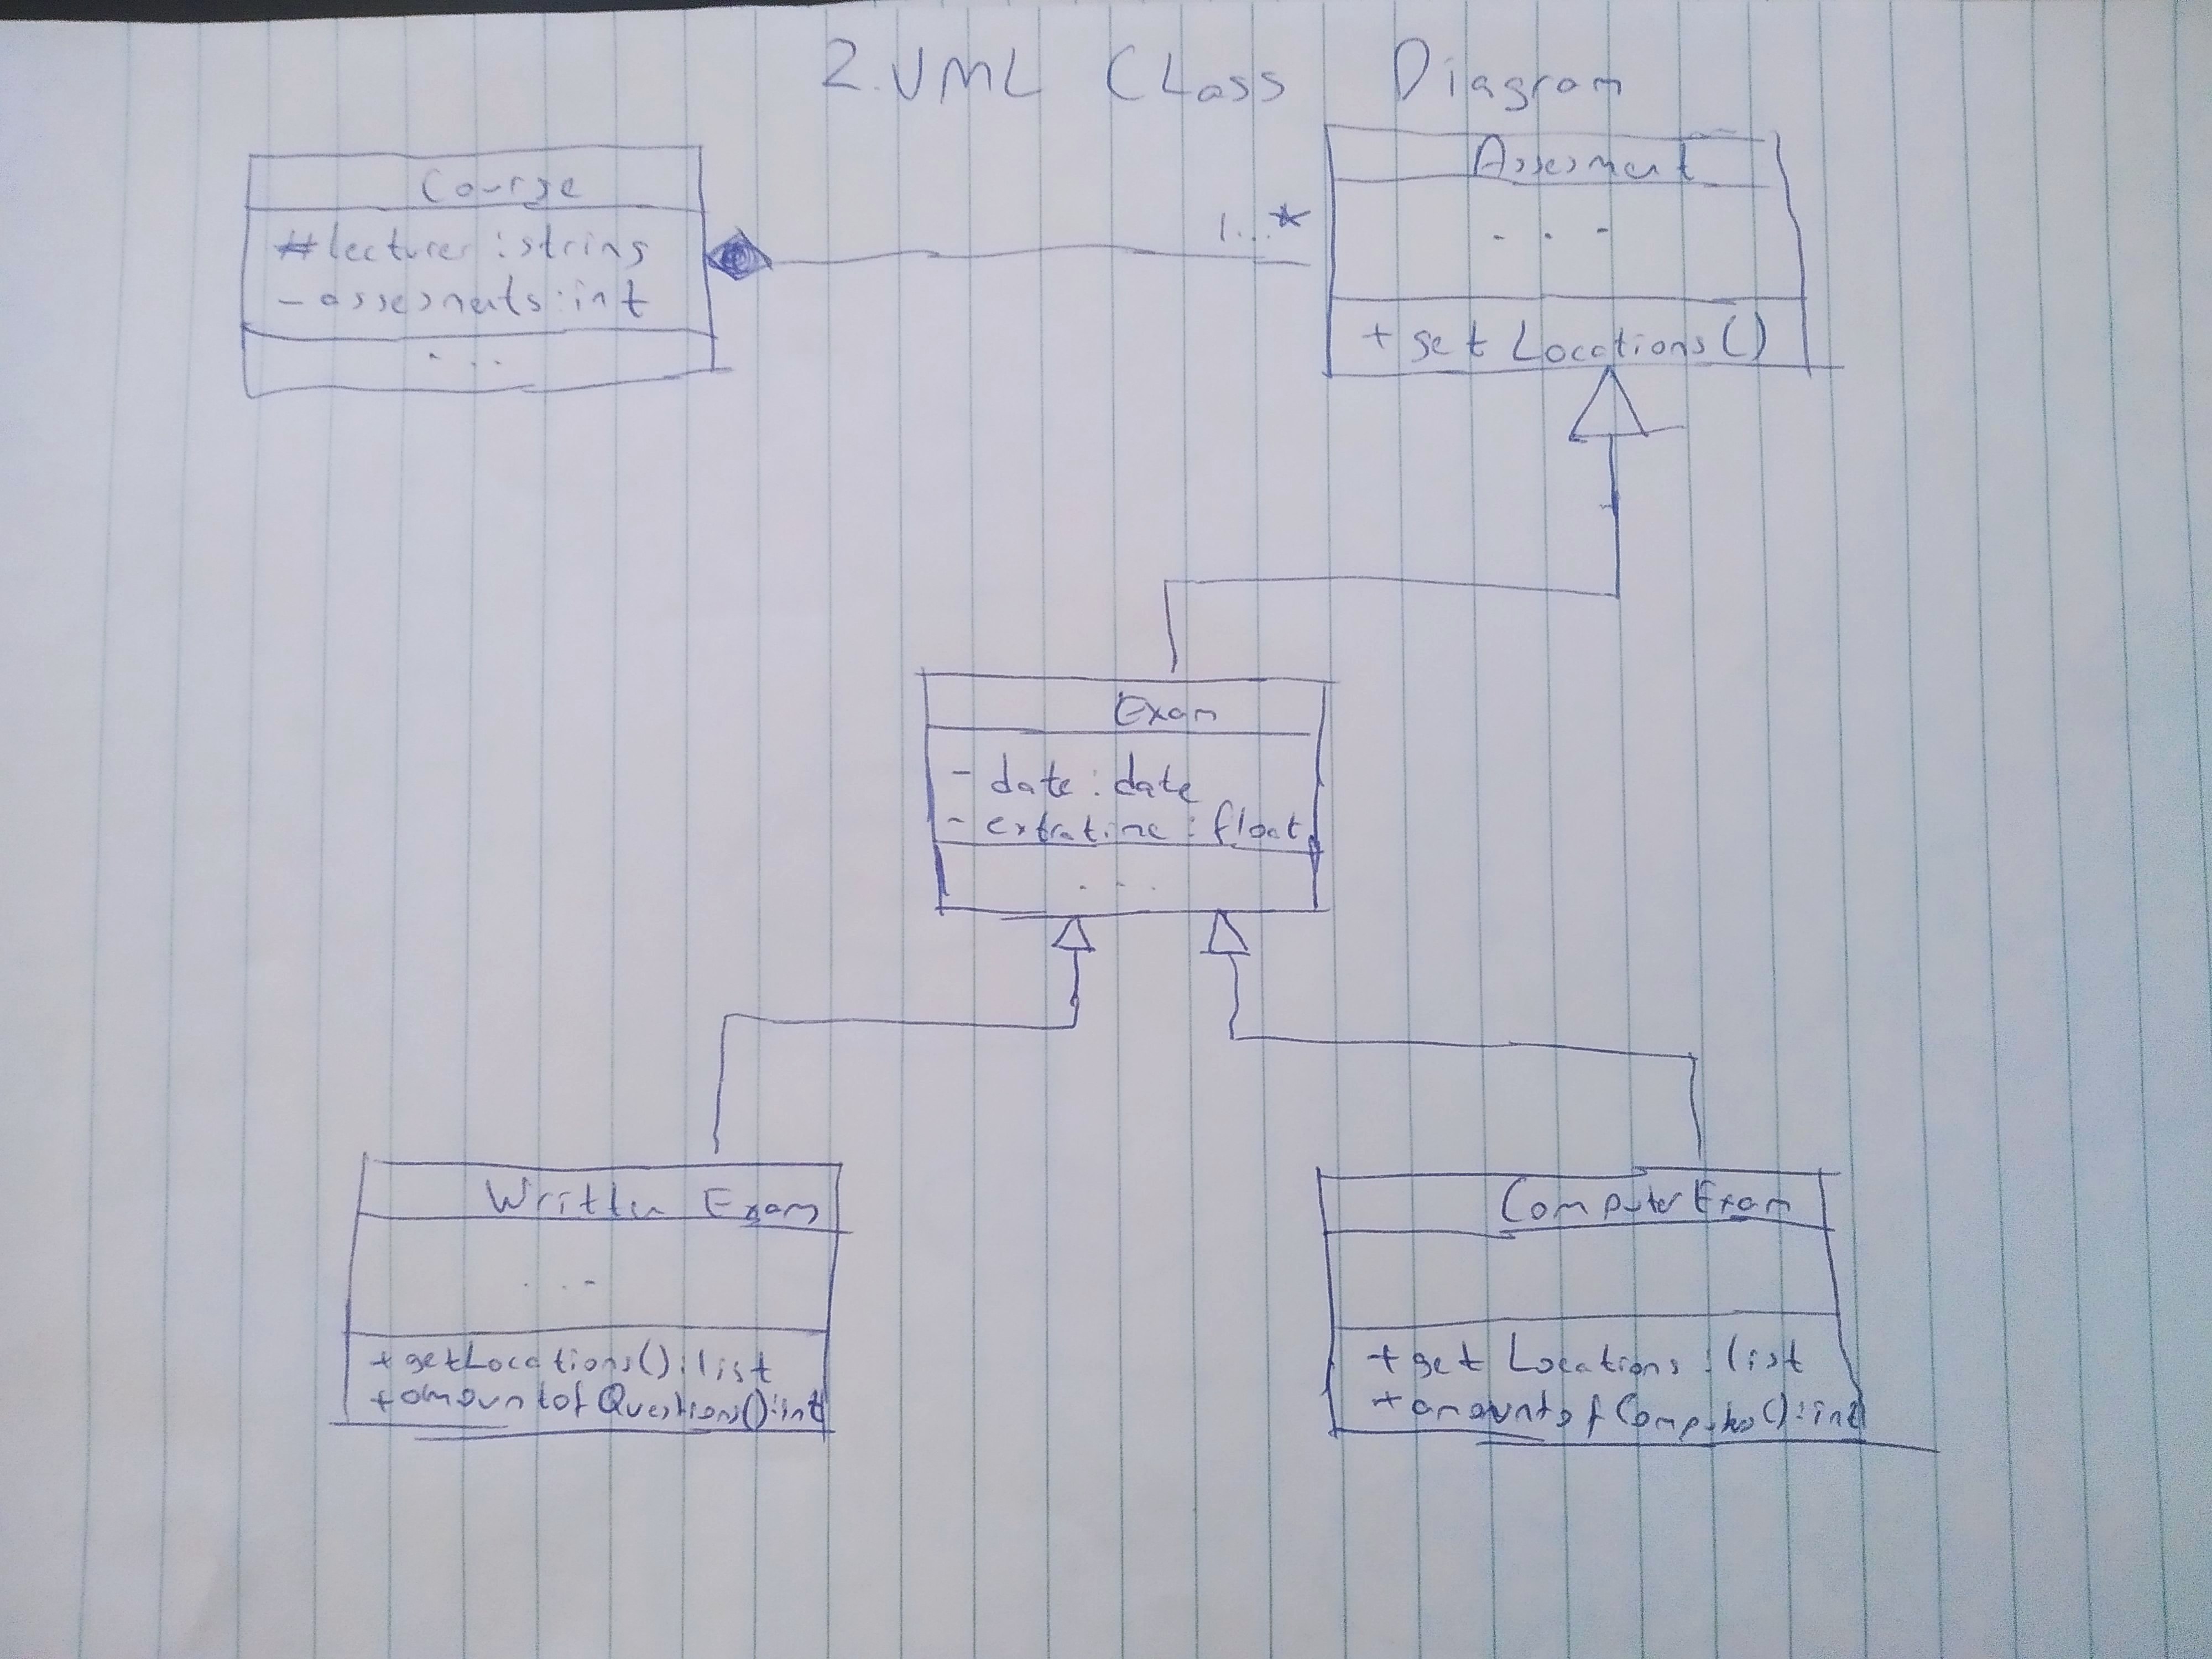 2. UML CLass Diagram
Course
#lecturer : string
- assesments : int
...
1...*
Assesment
...
+ get Locations()
Exam
- date : date
- extratime : float
...
Written Exam
...
+ getLocations() : list
+ amountofQuestions() : int
Computer Exam
+ get Locations : list
+ amountof Computers() : int